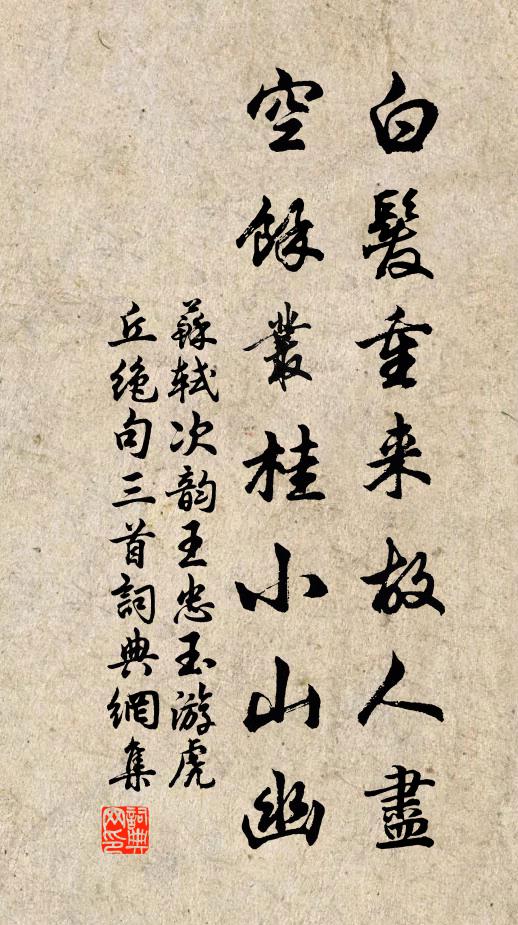 白髮重来故人盡
空餘叢桂小山幽
蘇軾次韵王忠玉游虎
丘绝句三首詞典網集
詞典
网印